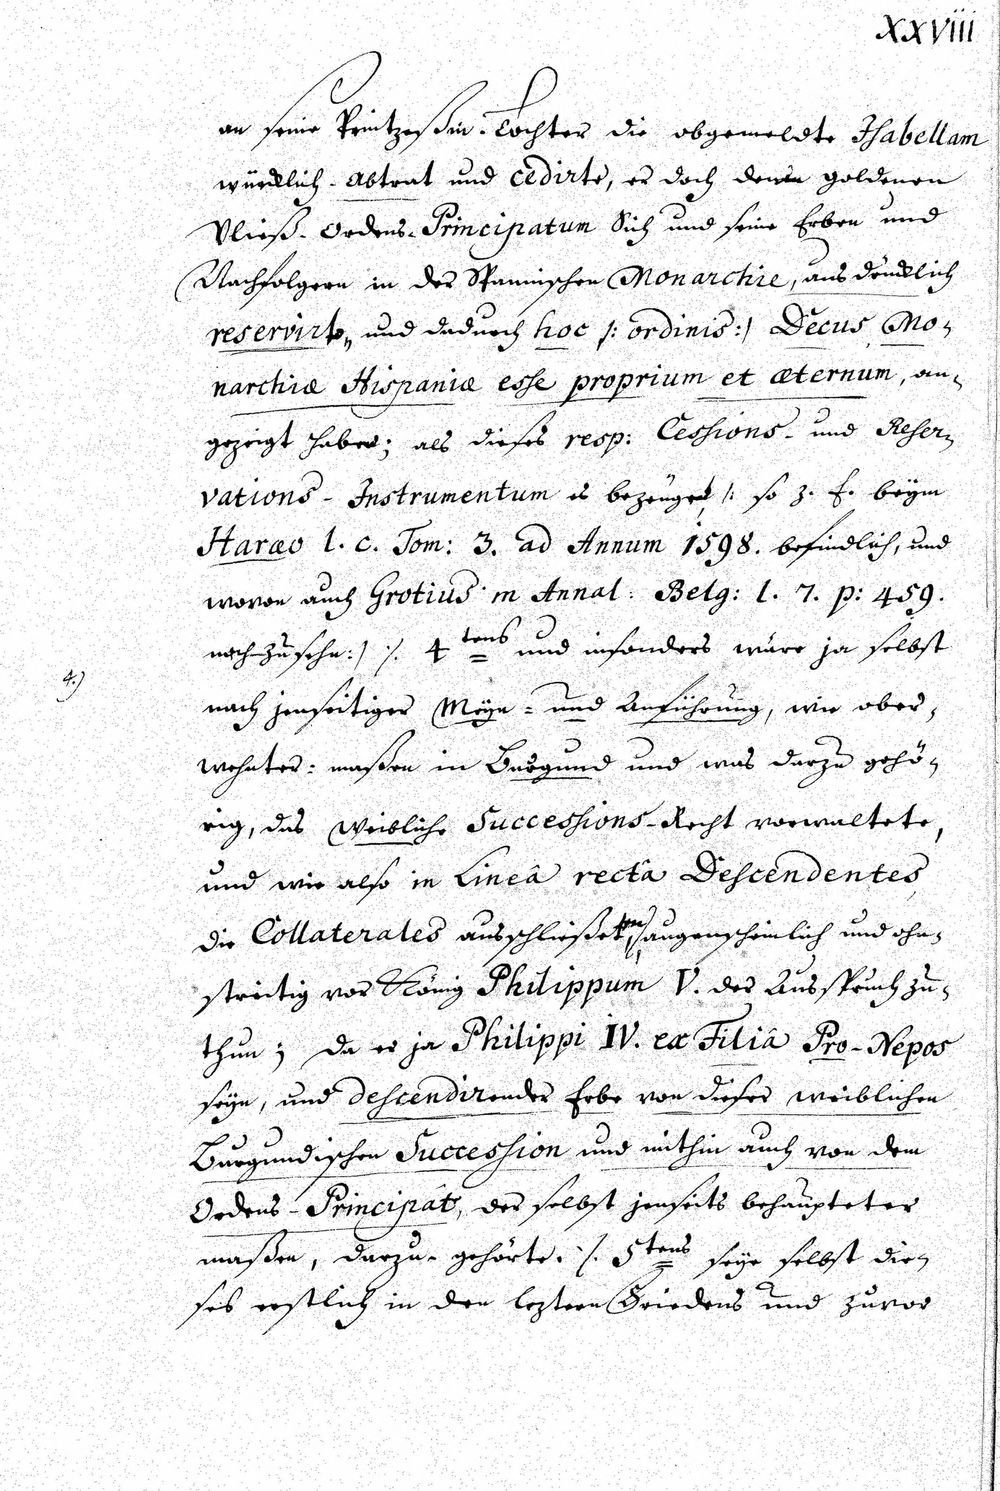 XXVIII
an seine Printzeßin-Tochter die obgemeldte Isabellam
würcklich-Abtrat und cedirte, er doch den goldenen
Vließ-Ordens-Principatum Sich und seine Erben und
Nachfolgern in der Spannischen Monarchie, ausdrücklich
reservirt, und dadurch hoc /: ordinis :/ Decus, Mo-
narchiæ Hispaniæ esse proprium et æternum, an-
gezeigt habe; als dieses resp: Cessions- und Reser-
vations-Instrumentum es bezeuget /: so z. E. beym
Haræo l. c. Tom: 3. ad Annum 1598. befindlich, und
wovon auch Grotius in Annal: Belg: l. 7. p: 459.
nach-zusehn :/ ./. 4tens und insonders wäre ja selbst
4.)
nach jenseitiger Meyn- und Anführung, wie ober-
wehnter-maßen in Burgund und was darzu gehö-
rig, das weibliche Successions-Recht vorwaltete,
und wie also in Lineâ rectâ Descendentes
die Collaterales ausschließeten, augenscheinlich und ohn-
streitig vor König Philippum V. der Ausspruch zu-
thun; da er ja Philippi IV. ex Filiâ Pro-Nepos
seye, und descendirender Erbe von dieser weiblichen
Burgundischen Succession und mithin auch von dem
Ordens-Principat, der selbst jenseits behaupteter
maßen, darzu-gehörte. ./. 5tens seye selbst die-
ses erstlich in den leztern Friedens und zuvor